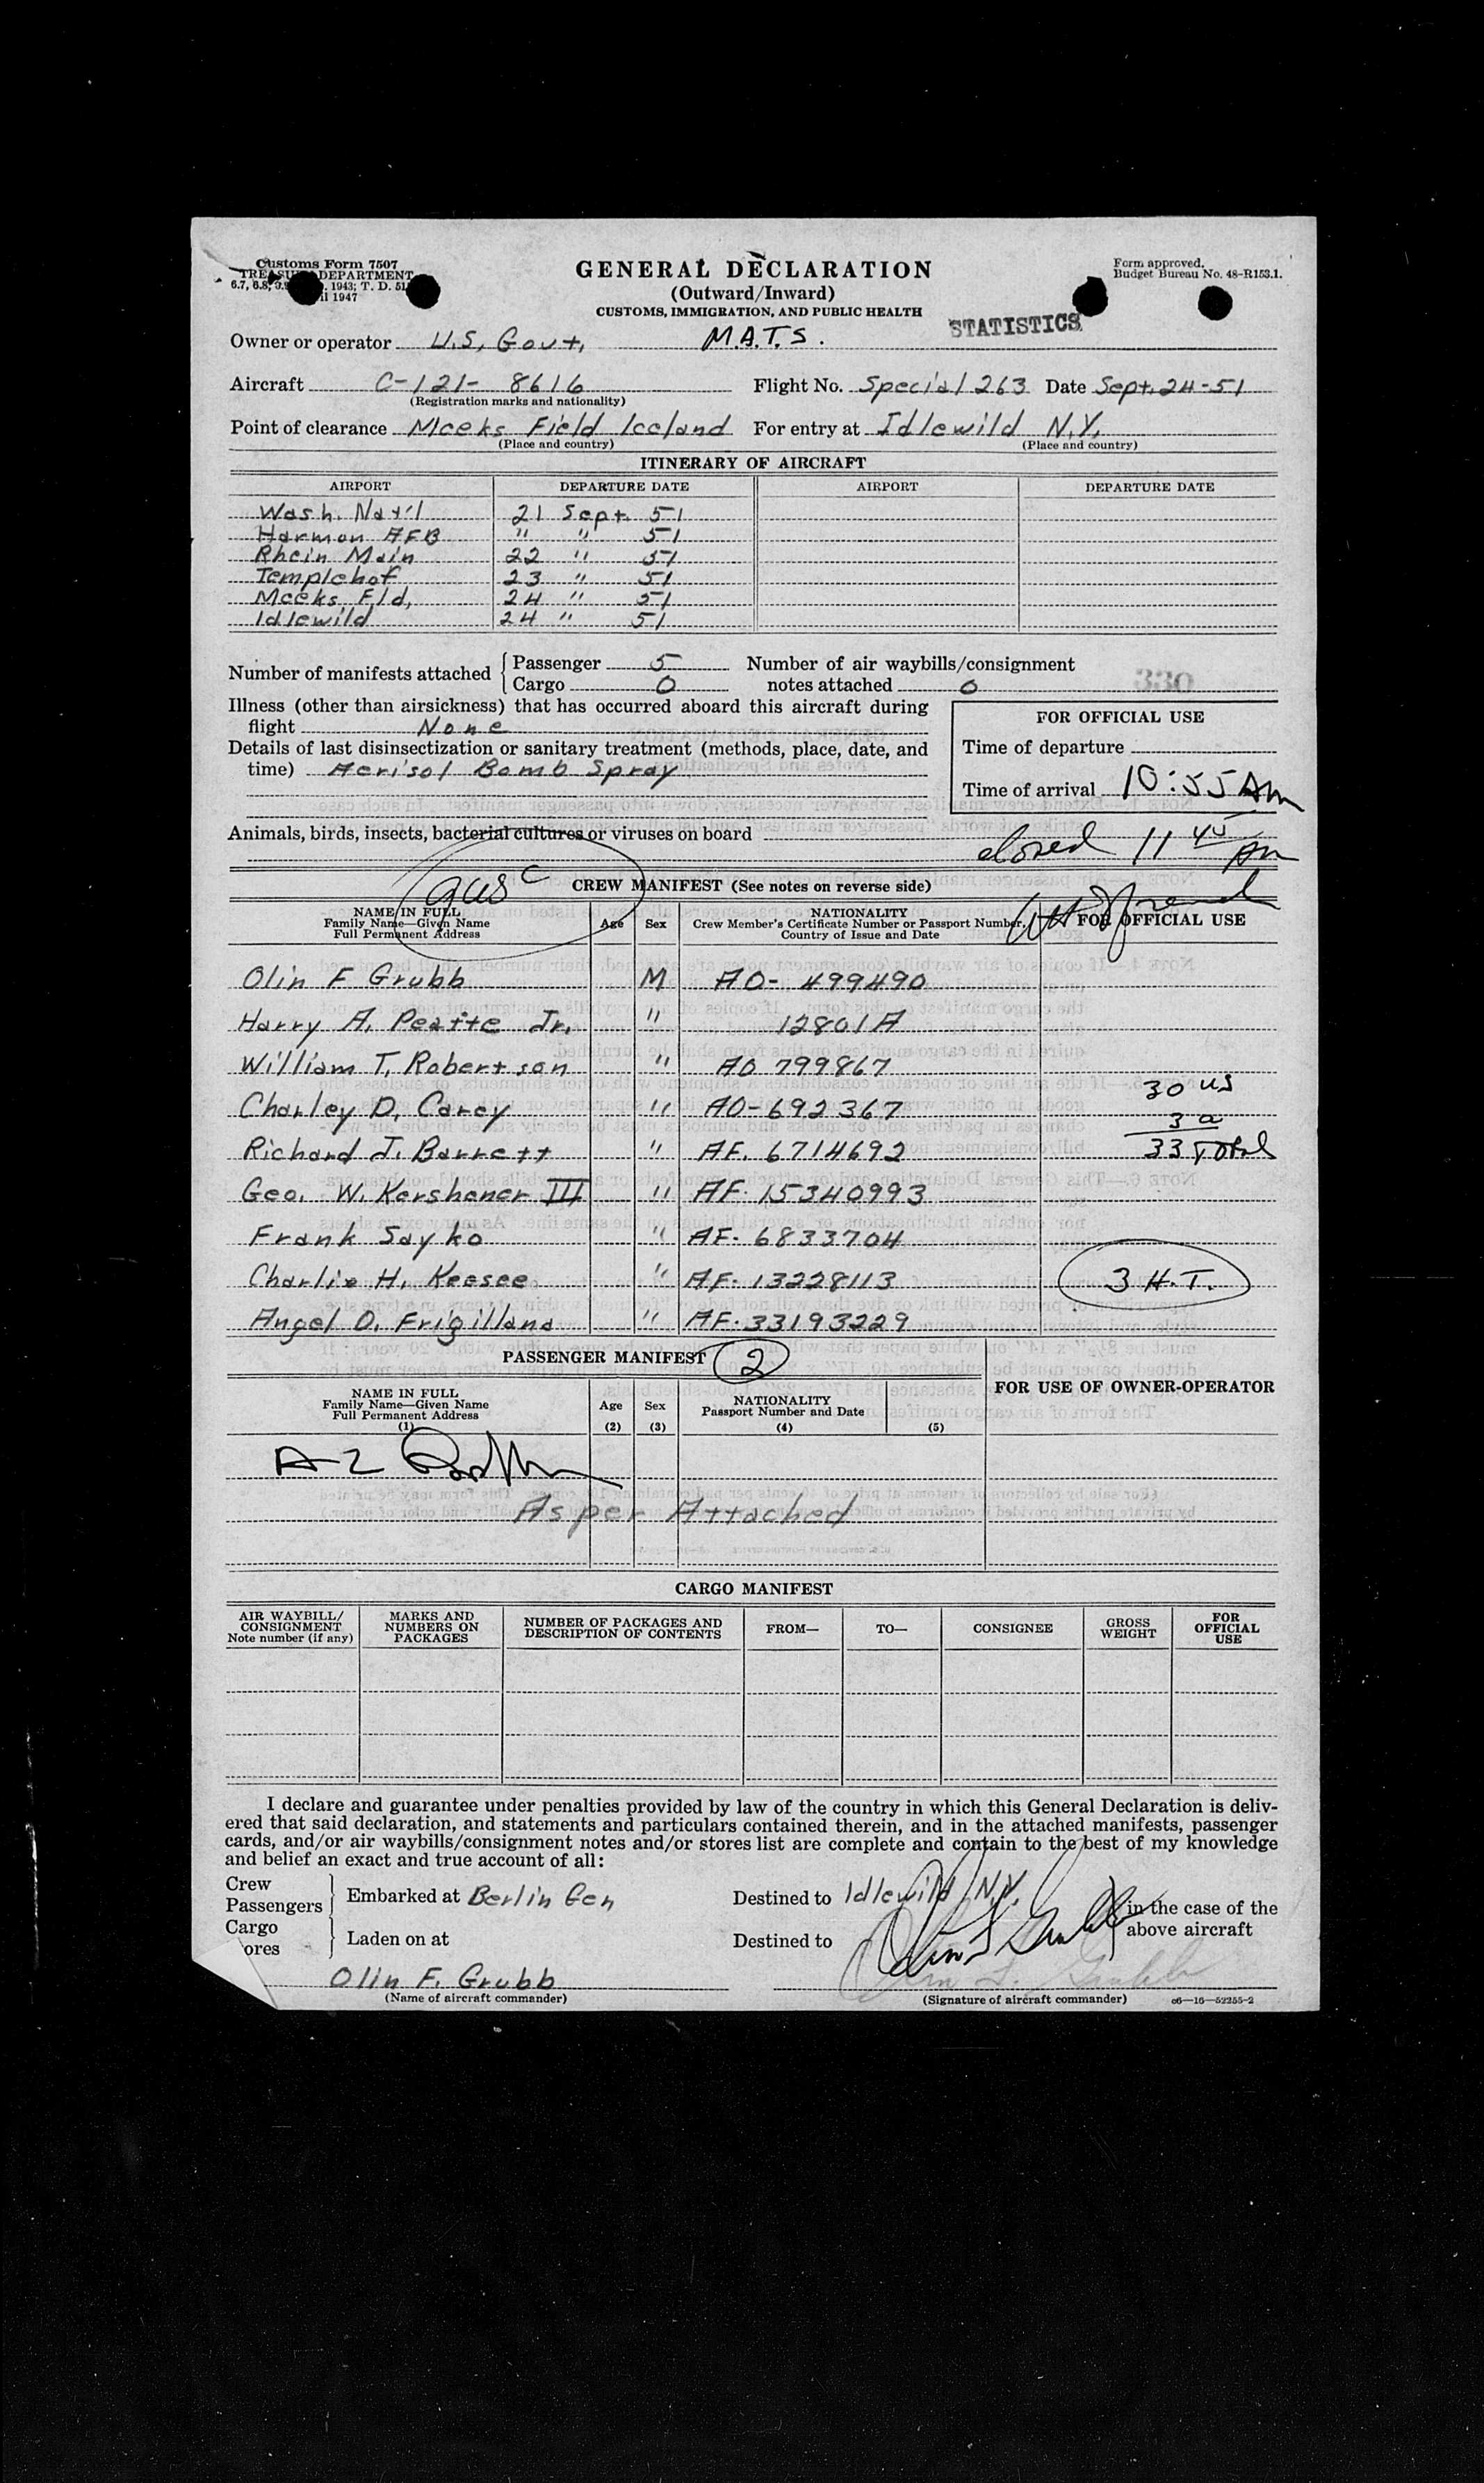 Customs Form 7507
TREASU DEPARTMENT
6.7, 6.8, 1943; T. D. 51
il 1947
GENERAL DECLARATION
(Outward/Inward)
CUSTOMS, IMMIGRATION, AND PUBLIC HEALTH
Form approved.
Budget Bureau No. 48-R153.1.
STATISTICS
Owner or operator U.S, Gout, M.A.T.S.
Aircraft C-121- 8616 Flight No. Special 263 Date Sept. 24-51
(Registration marks and nationality)
Point of clearance Meeks Field Iceland For entry at Idlewild N.Y.
(Place and country) (Place and country)
ITINERARY OF AIRCRAFT
AIRPORT DEPARTURE DATE AIRPORT DEPARTURE DATE
Wash. Nat'l 21 Sept. 51
Harmon AFB " " 51
Rhein Main 22 " 51
Templehof 23 " 51
Meeks Fld, 24 " 51
Idlewild 24 " 51
Number of manifests attached { Passenger 5 Number of air waybills/consignment
Cargo 0 notes attached 0
330
Illness (other than airsickness) that has occurred aboard this aircraft during
flight None
Details of last disinsectization or sanitary treatment (methods, place, date, and
time) Aerisol Bomb Spray
FOR OFFICIAL USE
Time of departure
Time of arrival 10:55 AM
Animals, birds, insects, bacterial cultures or viruses on board
closed 11 45 AM
9 US C
CREW MANIFEST (See notes on reverse side)
NAME IN FULL
Family Name—Given Name
Full Permanent Address
Age Sex
NATIONALITY
Crew Member's Certificate Number or Passport Number,
Country of Issue and Date
FOR OFFICIAL USE
Olin F Grubb M AO- 499490
Harry A. Pearte Jr. " 12801A
William T. Robertson " AO 799867
Charley D. Carey " AO-692367
30 us
3 a
33 Total
Richard J. Barrett " AF. 6714692
Geo. W. Kershener III " AF. 15340993
Frank Sayko " AF- 6833704
Charlie H. Keesee " AF- 13228113
3 H.T.
Angel O. Frigillana " AF- 33193229
PASSENGER MANIFEST 2
NAME IN FULL
Family Name—Given Name
Full Permanent Address
(1)
Age
(2)
Sex
(3)
NATIONALITY
Passport Number and Date
(4) (5)
FOR USE OF OWNER-OPERATOR
As per Attached
CARGO MANIFEST
AIR WAYBILL/
CONSIGNMENT
Note number (if any)
MARKS AND
NUMBERS ON
PACKAGES
NUMBER OF PACKAGES AND
DESCRIPTION OF CONTENTS
FROM— TO— CONSIGNEE
GROSS
WEIGHT
FOR
OFFICIAL
USE
I declare and guarantee under penalties provided by law of the country in which this General Declaration is deliv-
ered that said declaration, and statements and particulars contained therein, and in the attached manifests, passenger
cards, and/or air waybills/consignment notes and/or stores list are complete and contain to the best of my knowledge
and belief an exact and true account of all:
Crew
Passengers } Embarked at Berlin Gen Destined to Idlewild N.Y. } in the case of the
Cargo
ores } Laden on at Destined to above aircraft
Olin F. Grubb Olin F. Grubb
(Name of aircraft commander) (Signature of aircraft commander) c6—16—52255-2